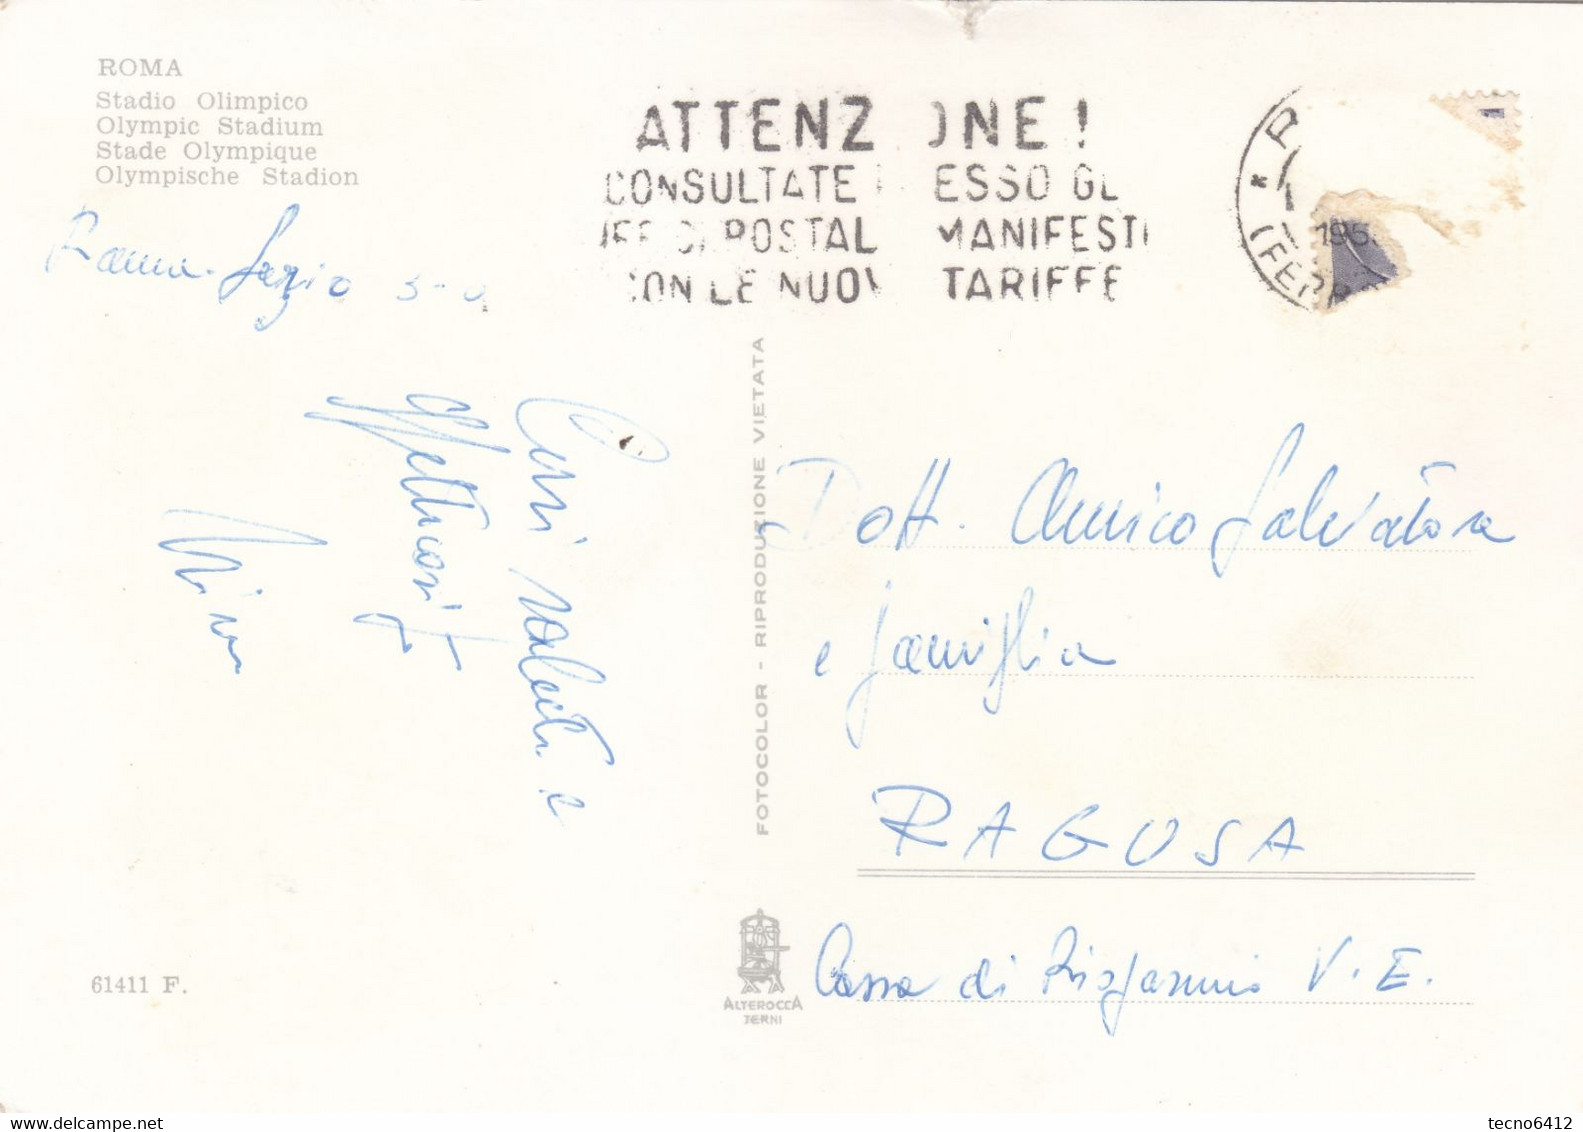 ROMA
Stadio Olimpico
Olympic Stadium
Stade Olympique
Olympische Stadion
ATTENZ ONE!
CONSULTATE ESSO GL
POSTAL MANIFESTI
CON LE NUOV TARIFFE
195
(FERR
Roma-Lazio 3-0
Cari saluti e
affettuosità
Nino
FOTOCOLOR - RIPRODUZIONE VIETATA
Dott. Amico Salvatore
e famiglia
RAGUSA
Cassa di Risparmio V.E.
61411 F.
ALTEROCCA
TERNI
tecno6412